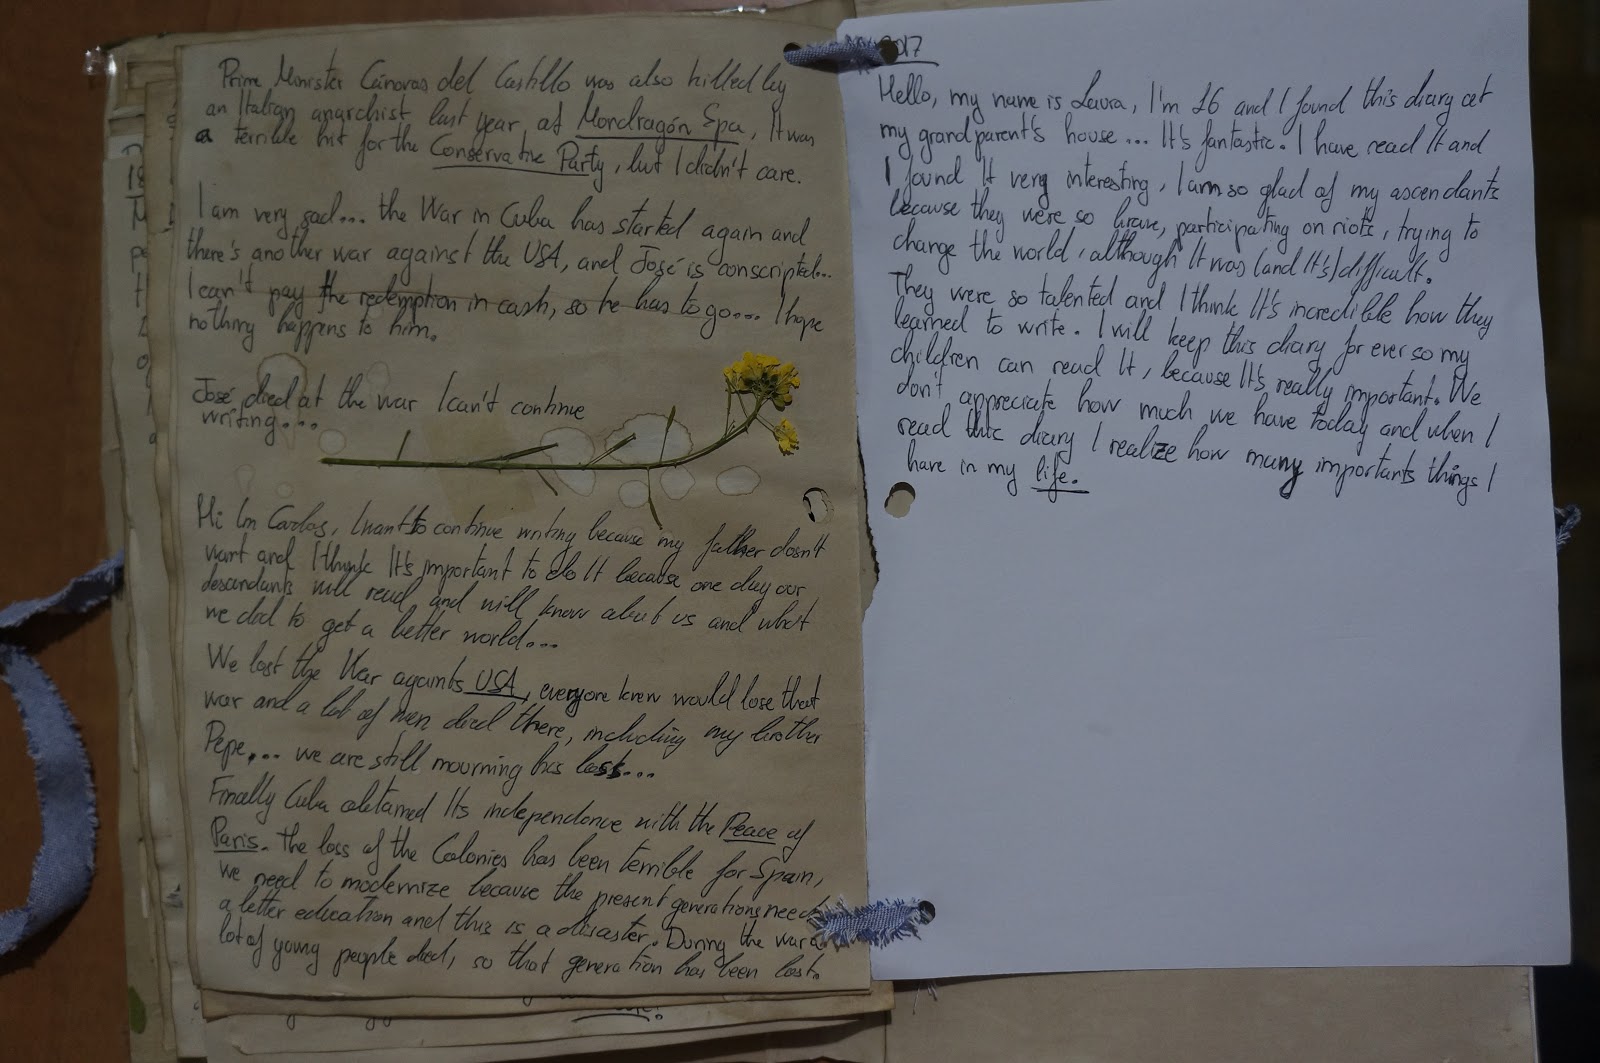 Prime Minister Cánovas del Castillo was also killed by
an Italian anarchist last year, at Mondragón Spa, It was
a terrible hit for the Conservative Party, but I didn't care.
I am very sad... the War in Cuba has started again and
there's another war against the USA, and José is conscripted...
I can't pay the redemption in cash, so he has to go.... I hope
nothing happens to him.
José died at the war I can't continue
writing....
Hi I'm Carlos, I want to continue writing because my father dosn't
want and I think It's important to do It because one day our
descendants will read and will know about us and what
we did to get a better world...
We lost the War againts USA, everyone knew would lose that
war and a lot of men died there, including my brother
Pepe,... we are still mourning his loss...
Finally Cuba obtained Its independence with the Peace of
Paris. The loss of the Colonies has been terrible for Spain,
we need to modernize because the present generations need
a better education and this is a disaster. During the war a
lot of young people died, so that generation has been lost.
2017
Hello, my name is Laura, I'm 16 and I found this diary at
my grandparent's house... It's fantastic. I have read It and
I found It very interesting, I am so glad of my ascendants
because they were so brave, participating on riots, trying to
change the world, although It was (and It's) difficult.
They were so talented and I think It's incredible how they
learned to write. I will keep this diary for ever so my
children can read It, because It's really important. We
don't appreciate how much we have today and when I
read this diary I realize how many importants things I
have in my life.